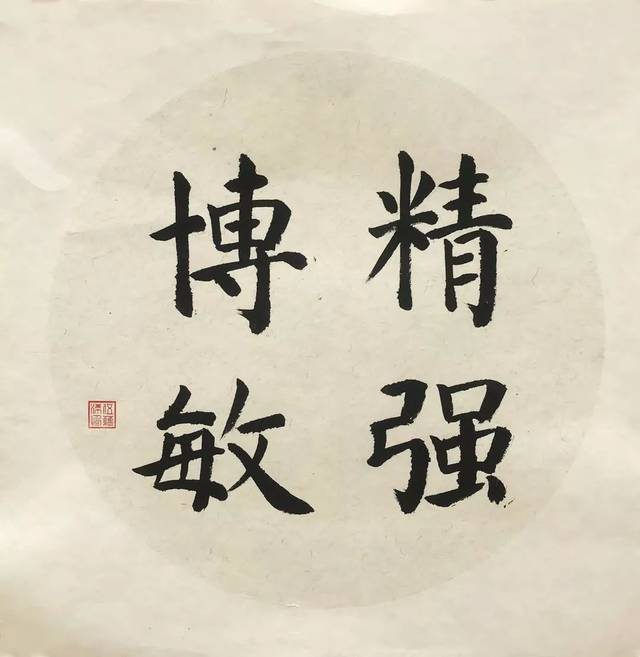 精强
博敏